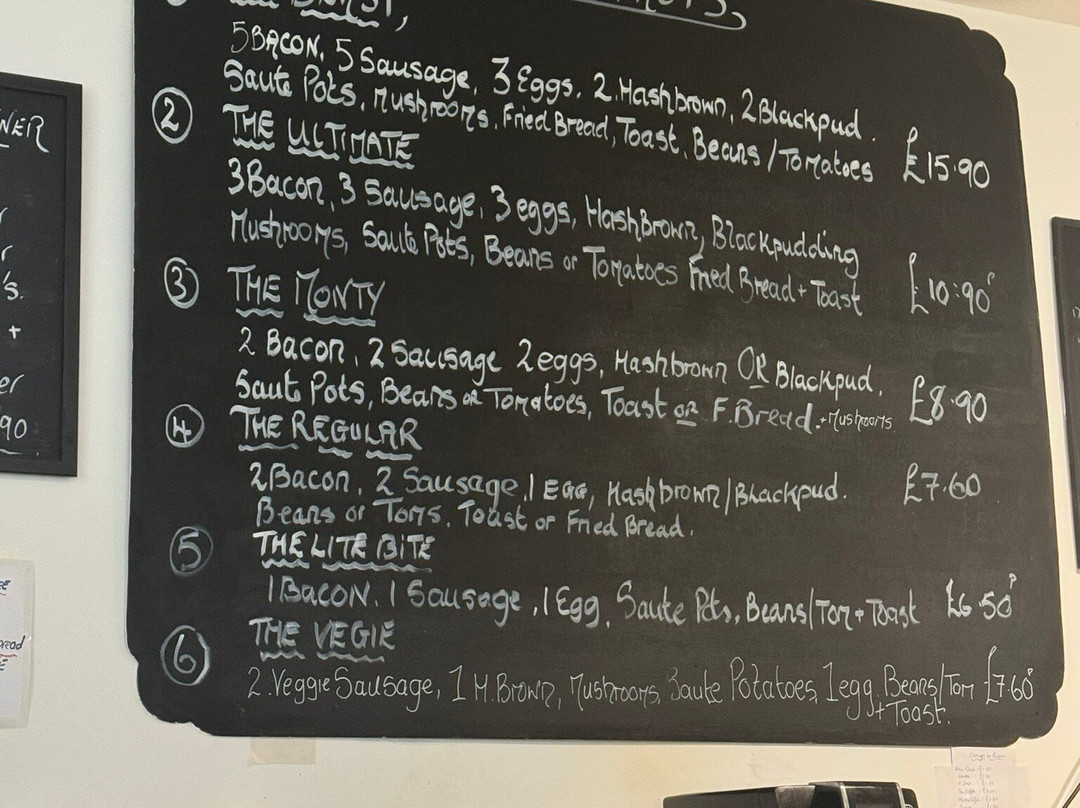 5 BACON, 5 Sausage, 3 Eggs, 2 Hashbrown, 2 Blackpud.
Saute Pots, Mushrooms, Fried Bread, Toast, Beans / Tomatoes £15.90
2 THE ULTIMATE
3 Bacon, 3 Sausage, 3 eggs, HashBrown, Blackpudding
Mushrooms, Saute Pots, Beans or Tomatoes Fried Bread + Toast £10.90p
3 THE MONTY
2 Bacon, 2 Sausage 2 eggs, Hashbrown OR Blackpud,
Saute Pots, Beans or Tomatoes, Toast or F. Bread. + Mushrooms. £8.90
4 THE REGULAR
2 Bacon, 2 Sausage, 1 EGG, Hashbrown / Blackpud. £7.60
Beans or Toms. Toast or Fried Bread.
5 THE LITE BITE
1 BACON, 1 Sausage, 1 Egg, Saute Pots, Beans/Tom + Toast £6.50p
6 THE VEGIE
2 Veggie Sausage, 1 H. Brown, Mushrooms, Saute Potatoes, 1 egg, Beans/Tom £7.60p
+ Toast.